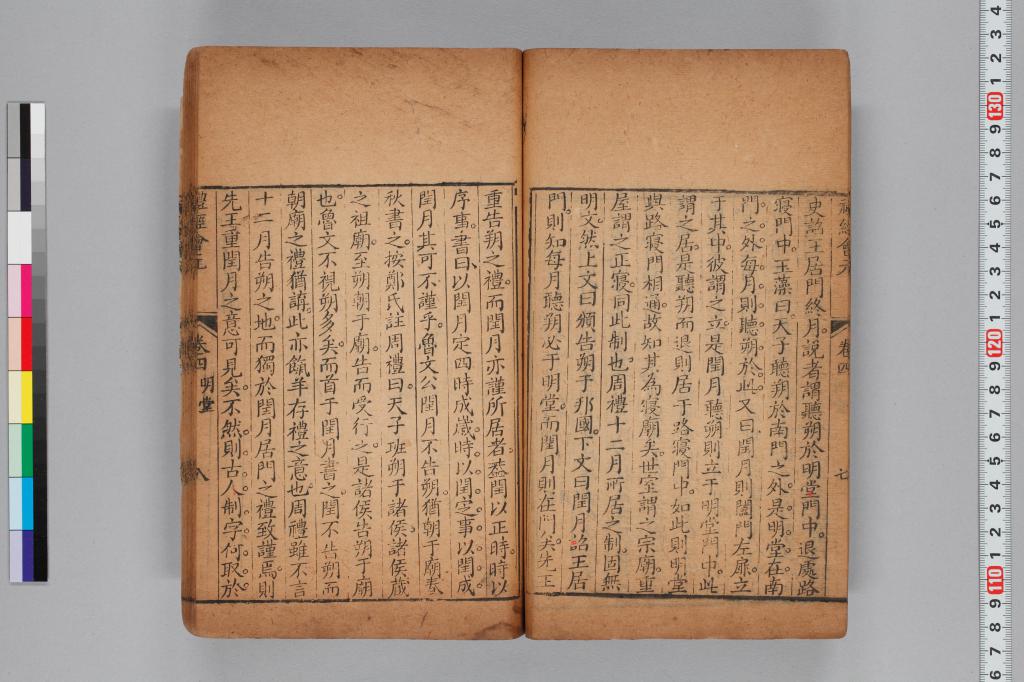 史詔王居門終月說者謂聽朔於明堂門中退處路
寢門中玉藻曰天子聽朔於南門之外是明堂在南
門之外每月則聽朔於此又曰閏月則闔門左扉立
于其中彼謂之立是閏月聽朔則立于明堂門中此
謂之居是聽朔而退則居于路寢門中如此則明堂
與路寢門相通故知其為寢廟矣世室謂之宗廟重
屋謂之正寢同此制也周禮十二月所居之制固無
明文然上文曰頒告朔于邦國下文曰閏月詔王居
門則知每月聽朔必于明堂而閏月則在門矣先王
禮經會元
卷四
七
重告朔之禮而閏月亦謹所居者葢閏以正時時以
序事書曰以閏月定四時成歲時以閏定事以閏成
閏月其可不謹乎魯文公閏月不告朔猶朝于廟春
秋書之按鄭氏註周禮曰天子班朔于諸侯諸侯藏
之祖廟至朔朝于廟告而受行之是諸侯告朔于廟
也魯文不視朔多矣而首于閏月書之閏不告朔而
朝廟之禮猶講此亦餼羊存禮之意也周禮雖不言
十二月告朔之地而獨於閏月居門之禮致謹焉則
先王重閏月之意可見矣不然則古人制字何取於
禮經會元
卷四 明堂
八